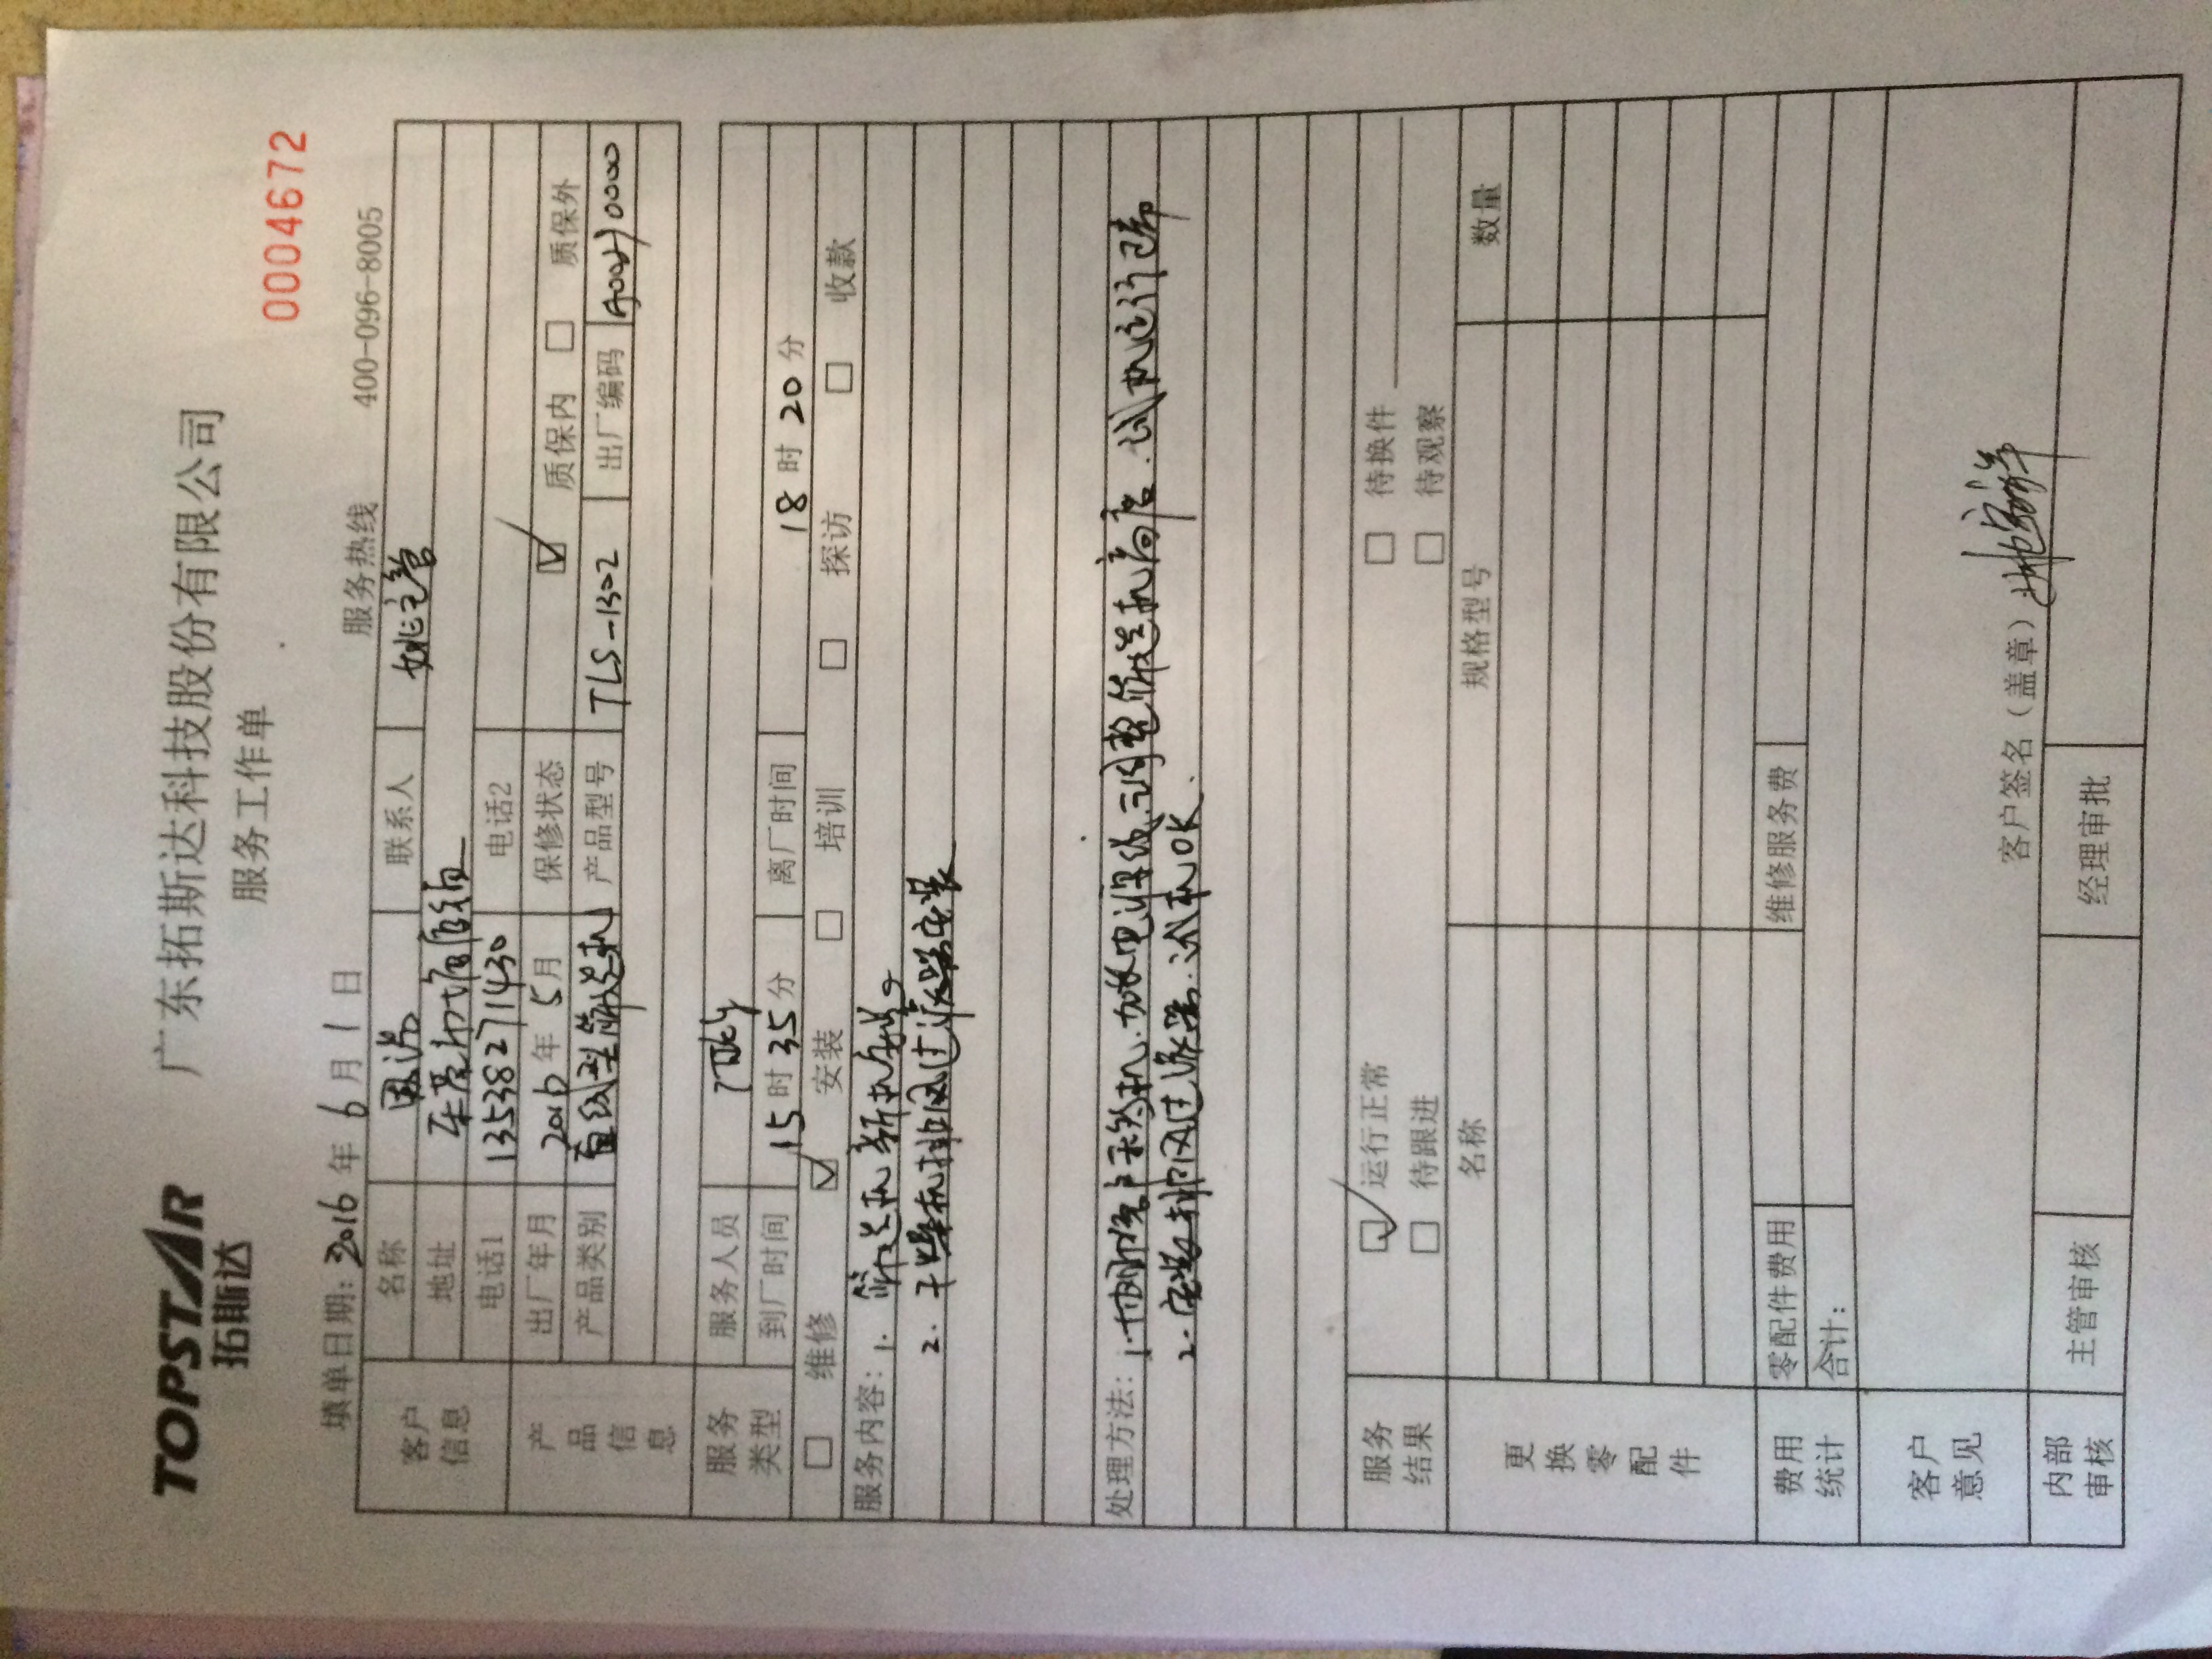 TOPSTAR
拓斯达
广东拓斯达科技股份有限公司
服务工作单
0004672
填单日期: 2016 年 6 月 1 日
服务热线 400-096-8005
客户信息
名称
联系人 姚主管
地址
电话1 13538271430 电话2
产品信息
出厂年月 2016 年 5 月 保修状态 ☑ 质保内 □ 质保外
产品类别 直线型筛选机 产品型号 TLS-1302 出厂编码
服务类型
服务人员
到厂时间 15 时 35 分 离厂时间 18 时 20 分
□ 维修 ☑ 安装 □ 培训 □ 探访 □ 收款
服务内容: 1. 筛选机新机安装
2. 干燥机排风过滤器安装
处理方法: 1. 协助客户 机. 加长电源线. 调整筛选机高度. 试机运行正常
2. 安装排风过滤器. 试机OK.
服务结果
☑ 运行正常 □ 待换件
□ 待跟进 □ 待观察
更换零配件
名称 规格型号 数量
费用统计
零配件费用 维修服务费
合计:
客户意见
客户签名(盖章)
内部审核
主管审核 经理审批